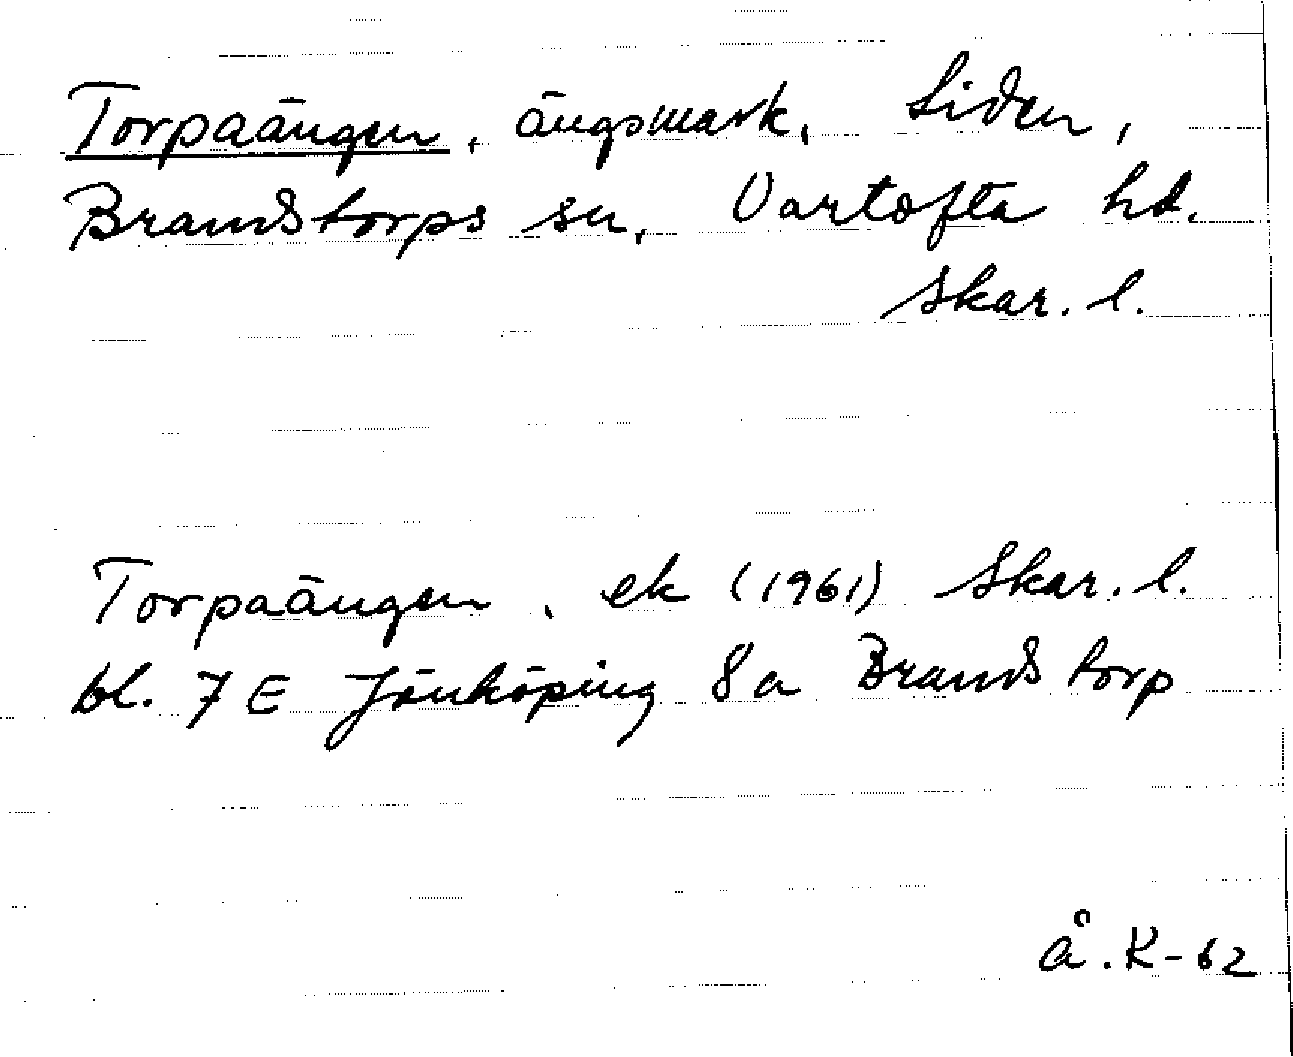 Torpaängen, ängsmark, Liden,
Brandstorps sn, Vartofta hd.
Skar. l.
Torpaängen, ek (1961) Skar. l.
bl. 7 E Jönköping 8a Brandstorp
Å.K-62